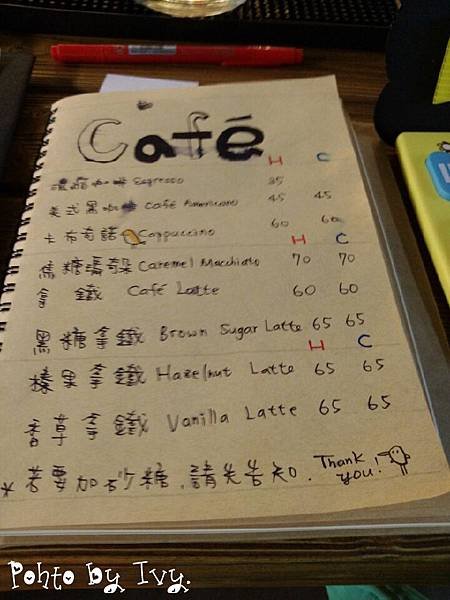 Café
H C
濃縮咖啡 Espresso 35
美式黑咖啡 Café Americano 45 45
卡布奇諾 Cappuccino 60 60
H C
焦糖瑪奇朵 Caremel Macchiato 70 70
拿鐵 Café Latte 60 60
黑糖拿鐵 Brown Sugar Latte 65 65
H C
榛果拿鐵 Hazelnut Latte 65 65
香草拿鐵 Vanilla Latte 65 65
*若要加砂糖,請先告知. Thank you!
Pohto by Ivy.